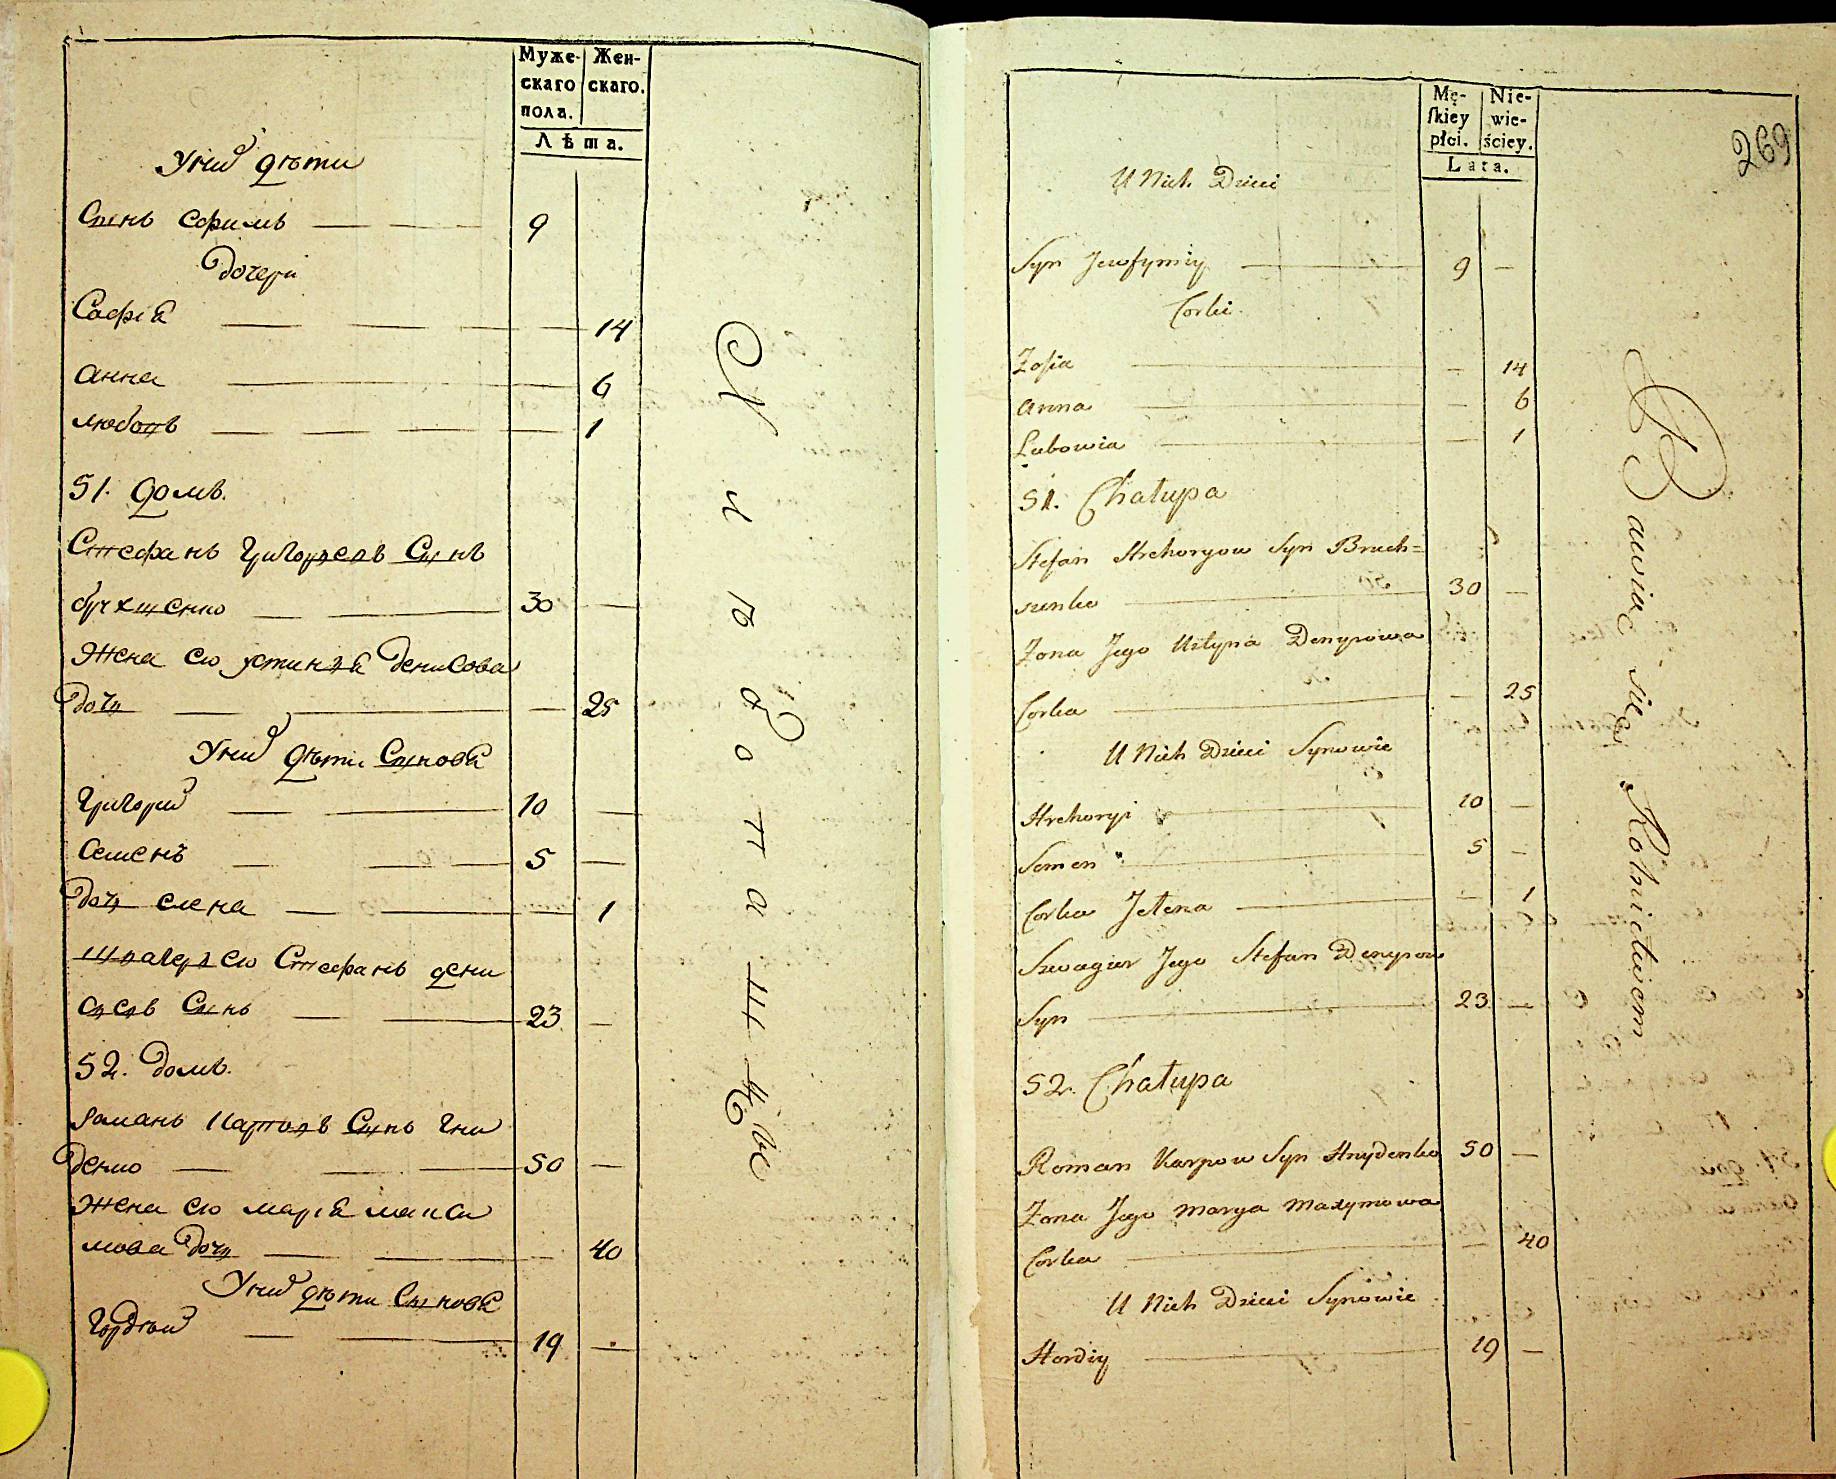 Муже-
скаго
пола.
Жен-
скаго.
Лѣта.
У них дѣти
Сынъ Ефимъ 9
Дочери
Софія 14
Анна 6
Любовъ 1
51. Домъ.
Стефанъ Григорьевъ Сынъ
30
Жена его Устинія Денисова
Дочь 25
У них дѣти Сыновя
Григорий 10
Семенъ 5
Дочь Елена 1
Швагеръ его Стефанъ Дени
совъ Сынъ 23
52. Домъ.
Романъ Карповъ Сынъ Гни
денко 50
Жена его Марія Макси
мова Дочь 40
У них дѣти Сыновя
Гордѣй 19
Mę-
ſkiey
płci.
Nie-
wie-
ściey.
Lata.
269
U Nich Dzieci
Syn Jewfymiy 9 —
Corki
Zofia — 14
Anna — 6
Lubowia — 1
51. Chałupa
Stefan Hrehoryow Syn Bruch=
szenko 30 —
Zona Jego Ustyna Denysowa
Corka — 25
U Nich Dzieci Synowie
Hrehoryi 10 —
Semen 5 —
Corka Jelena — 1
Szwagier Jego Stefan Denysow
Syn 23 —
52. Chałupa
Roman Karpow Syn Hnydenko 50 —
Zona Jego Marya Maxymowa
Corka — 40
U Nich Dzieci Synowie
Hordiy 19 —
Bawiąc się Rolnictwem